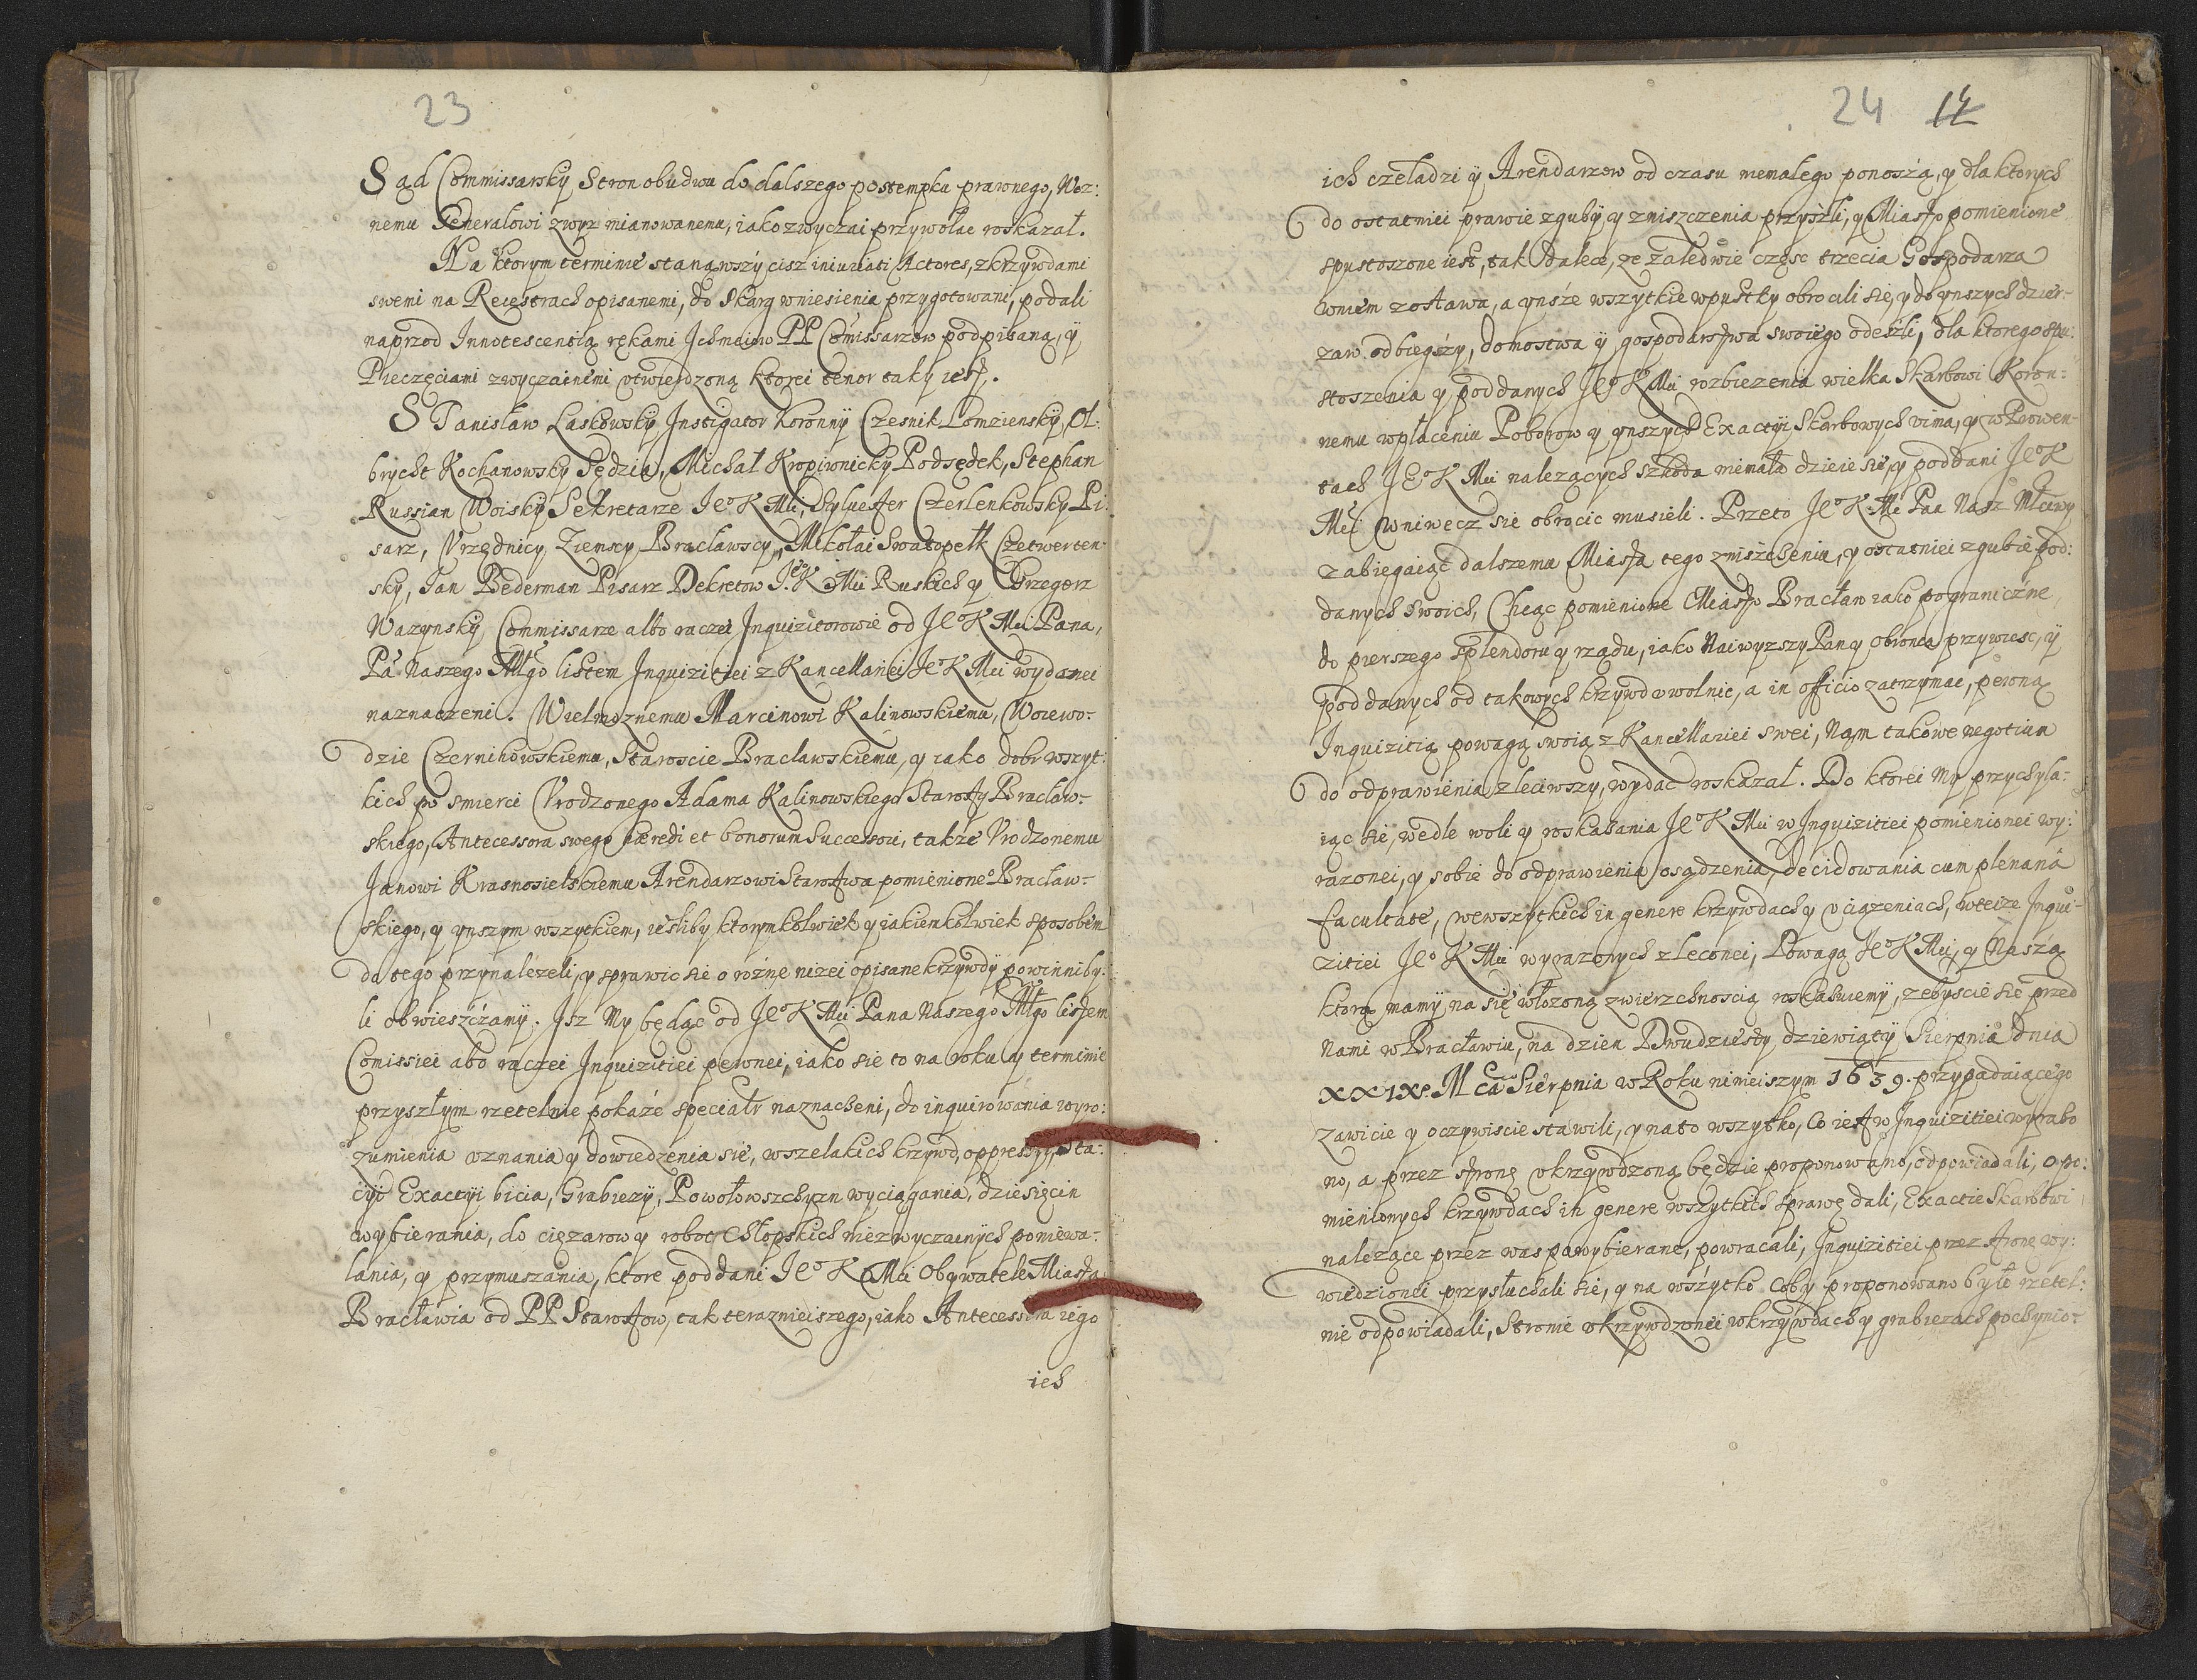 23
Sąd Commissarsky Stron obudwu do dalszego postempku prawnego, Woz:
nemu Generałowi zwyz mianowanemu, iako zwyczai przywołac roskazał.
Na ktorym terminie stanąwszy cisz iniuriati Actores, z krzywdami
swemi na Reiestrach opisanemi, do skarg wniesienia przygotowani, podali
naprzod Innotescentią rękami Ichmciow PP Comissarzow podpisaną, ÿ
Pieczęciami zwyczainemi utwierdzoną ktorei tenor taky iest.
STanisław Laskowsky Instigator Koronny Czesnik Łomziensky, Ol:
brycht Kochanowsky Sędzia, Michał Kropiwnicky Podsędek, Stephan
Russian Woisky Sekretarze Je° K Mci, Sylvester Czerlenkowsky Pi:
sarz, Vrzędnicy Ziemscy Bracławscy, Mikołai Swatopełk Czetwerten:
sky, Ian Bederman Pisarz Dekretow Je° K Mci Ruskich y Grzegorz
Wazynsky Commissarze albo raczei Inquizitorowie od Je° K Mci Pana,
Pa Naszego Młgo listem Inquizitiei z Kancellariei Je° K Mci wydanei
naznaczeni. Wielmoznemu Marcinowi Kalinowskiemu, Woiewo:
dzie Czernihowskiemu, Staroscie Bracławskiemu, y iako dobr wszyt:
kich po smierci Vrodzonego Adama Kalinowskiego Starosty Bracław:
skiego, Antecessora swego hæredi et bonorum Successori, także Vrodzonemu
Janowi Krasnosielskiemu Arendarzowi Starostwa pomienione° Bracław:
skiego, y ynszym wszytkiem, iesliby ktorymkolwiek y iakiemkolwiek sposobem
do tego przynalezeli, y sprawic sie o rożne nizei opisane krzywdy powinni by:
li obwieszczamy. Jsz My będąc od Je° K Mci Pana Naszego Młgo listem
Comissiei abo raczei Inquizitiei pewnei, iako sie to na roku y terminie
przyszłym rzetelnie pokaże specialr naznacheni, do inquirowania wyro:
zumienia uznania y dowiedzenia sie, wszelakich krzywd, oppressyi, Sta:
cyi Exactyi bicia, Grabiezy, Powołowszchyzn wyciągania, dziesięcin
wybierania, do cięzarow y robot chłopskich niezwyczainych poniewa:
lania, y przymuszania, ktore poddani Je° K Mci Obywatele Miasta
Bracławia od PP Starostow, tak terazniejszego, iako Antecessora iego
ich
24 14
ich czeladzi ÿ Arendarzow od czasu niemałego ponoszą, y dla ktorych
do ostatniei prawie zguby y zniszczenia przyszli, y Miasto pomienione
spustoszone iest, tak dalece, ze zaledwie częsc trzecia Gospodarza
wniem zostawa, a ynsze wszytkie wpustky obrocili sie, y do ynszych dzier:
zaw odbiegszy, domostwa ÿ gospodarstwa swoiego odeszli, dla ktorego spu:
stoszenia y poddanych Je° K Mci rozbiezenia wielka Skarbowi Koron:
nemu wpłaceniu Poborow y ynszych Exactyi Skarbowych vima, y w Prowen:
tach JE° K Mci nalezących szkoda niemała dzieie sie, y poddani Je° K
Mci wniwecz sie obrocic musieli. Przeto Je° K Mc Pan Nasz Młciwy
zabiegaiąc dalszemu Miasta tego zniszcheniu, y ostatniei zgubie pod:
danych swoich, Chcąc pomienione Miasto Bracław iako pograniczne
do pierszego splendoru y rządu, iako Naiwyzszy Pan y Obronca przywiesc, ÿ
poddanych od takowych krzywd uwolnic, a in officio zatrzymac, pewną
Inquizitią powagą swoią z Kancellariei swei, Nam takowe negotium
do odprawienia zleciwszy, wydac roskazał. Do ktorei My przychyla:
iąc sie, wedle woli y roskazania Je° K Mci w Inquizitiei pomienionei wy:
razonei, y sobie do odprawienia osądzenia, decidowania cum plenaria
facultate, we wszytkich in genere krzywdach y uciązeniach, w teize Inqui:
zitiei Je° K Mci wyrazonych zleconei, Powagą Je° K Mci, y Naszą
ktorą mamy na sie włozoną zwierzchnoscią roskazuiemy, zebyscie sie przed
Nami w Bracławiu, na dzien Dwudziesty dziewiąty Sierpnia dnia
XXIX° Mca Sierpnia w Roku niniejszym 1639. przypadaiącego
zawicie y oczywiscie stawili, y na to wszytko, Co iest w Inquizitiei wyrażo
no, a przez stronę ukrzywdzoną będzie proponowano, odpowiadali, o po:
mienionych krzywdach in genere wszytkich sprawę dali, Exactie Skarbowi
nalezące przez was powybierane, powracali, Inquizitiei przez stronę wy:
wiedzionei przysłuchali sie, y na wszytko coby proponowano było rzetel:
nie odpowiadali, Stronie ukrzywdzonei w krzywdach y grabiezach pochynio: